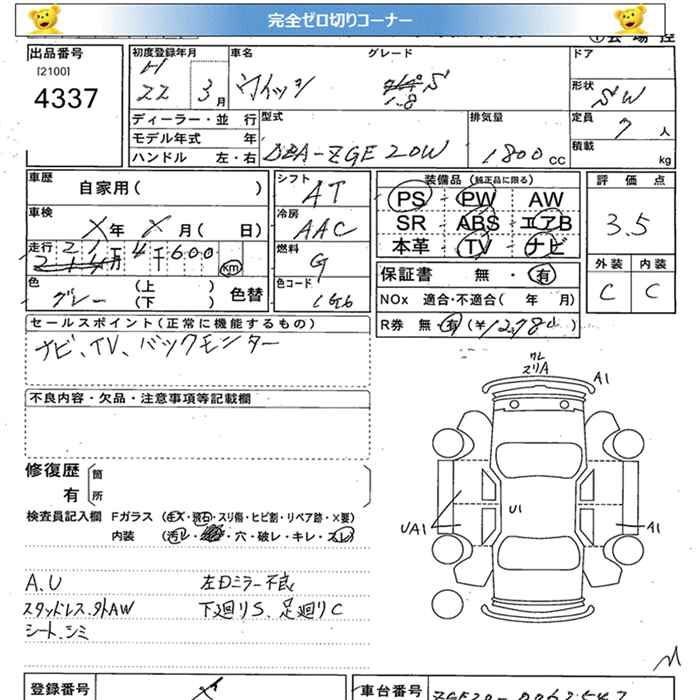 完全ゼロ切りコーナー
出品番号
[2100]
4337
初度登録年月
H
22 3月
車名
ウイッシュ
グレード
1.8 S
ドア
形状
SW
ディーラー・並 行
モデル年式 年
ハンドル 左・右
型式
DBA-ZGE20W
排気量
1800 CC
定員
7 人
積載
kg
車歴
自家用( )
車検
X年 X月( 日)
走行 21万4千600
km
色
グレー
(上 )
(下 )
色替
シフト
AT
冷房
AAC
燃料
G
色コード
1G6
装備品(純正品に限る)
PS PW AW
SR ABS エアB
本革 TV ナビ
保証書 無・有
NOx 適合・不適合( 年 月)
R券 無・有(¥
評価点
3.5
外装 内装
C C
セールスポイント(正常に機能するもの)
ナビ、TV、バックモニター
不良内容・欠品・注意事項等記載欄
修復歴
有
箇
所
検査員記入欄 Fガラス (キズ・飛石・スリ傷・ヒビ割・リペア跡・×要)
内装 (汚レ・ ・穴・破レ・キレ・スレ)
A.U 左Dミラー不良
スタッドレス.外AW 下廻りS、足廻りC
シート.シミ
ワレ
スリA
A1
U1
UA1
A1
登録番号
車台番号
ZGE20-